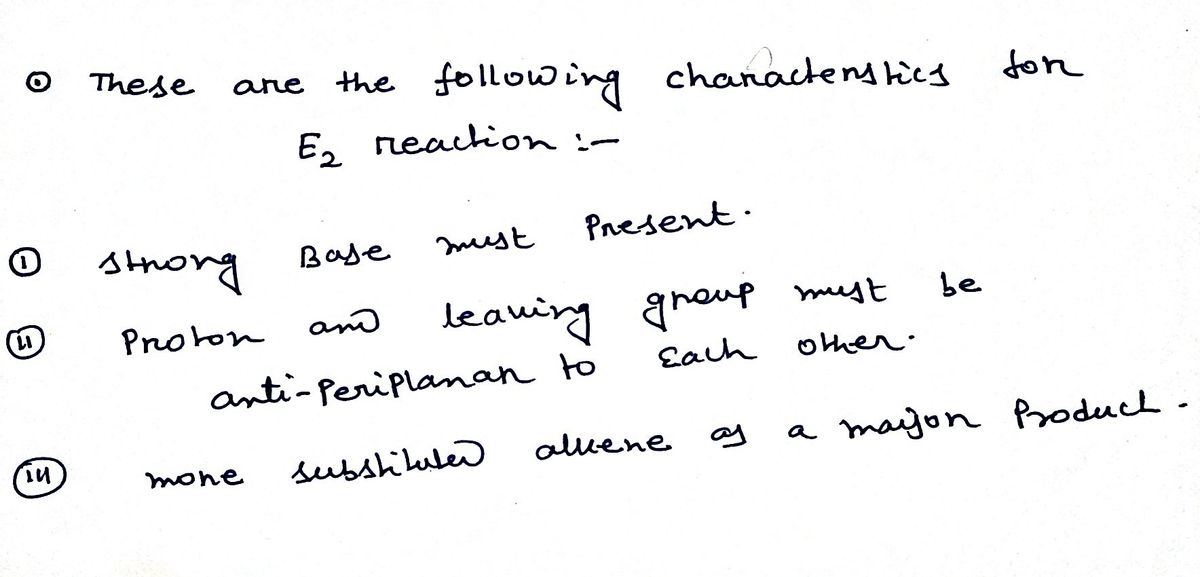 ⊙ These are the following characteristics for
E2 reaction :-
(i) strong Base must Present.
(ii) Proton and leaving group must be
anti-Periplanar to Each other.
(iii) more substituted alkene as a major Product.